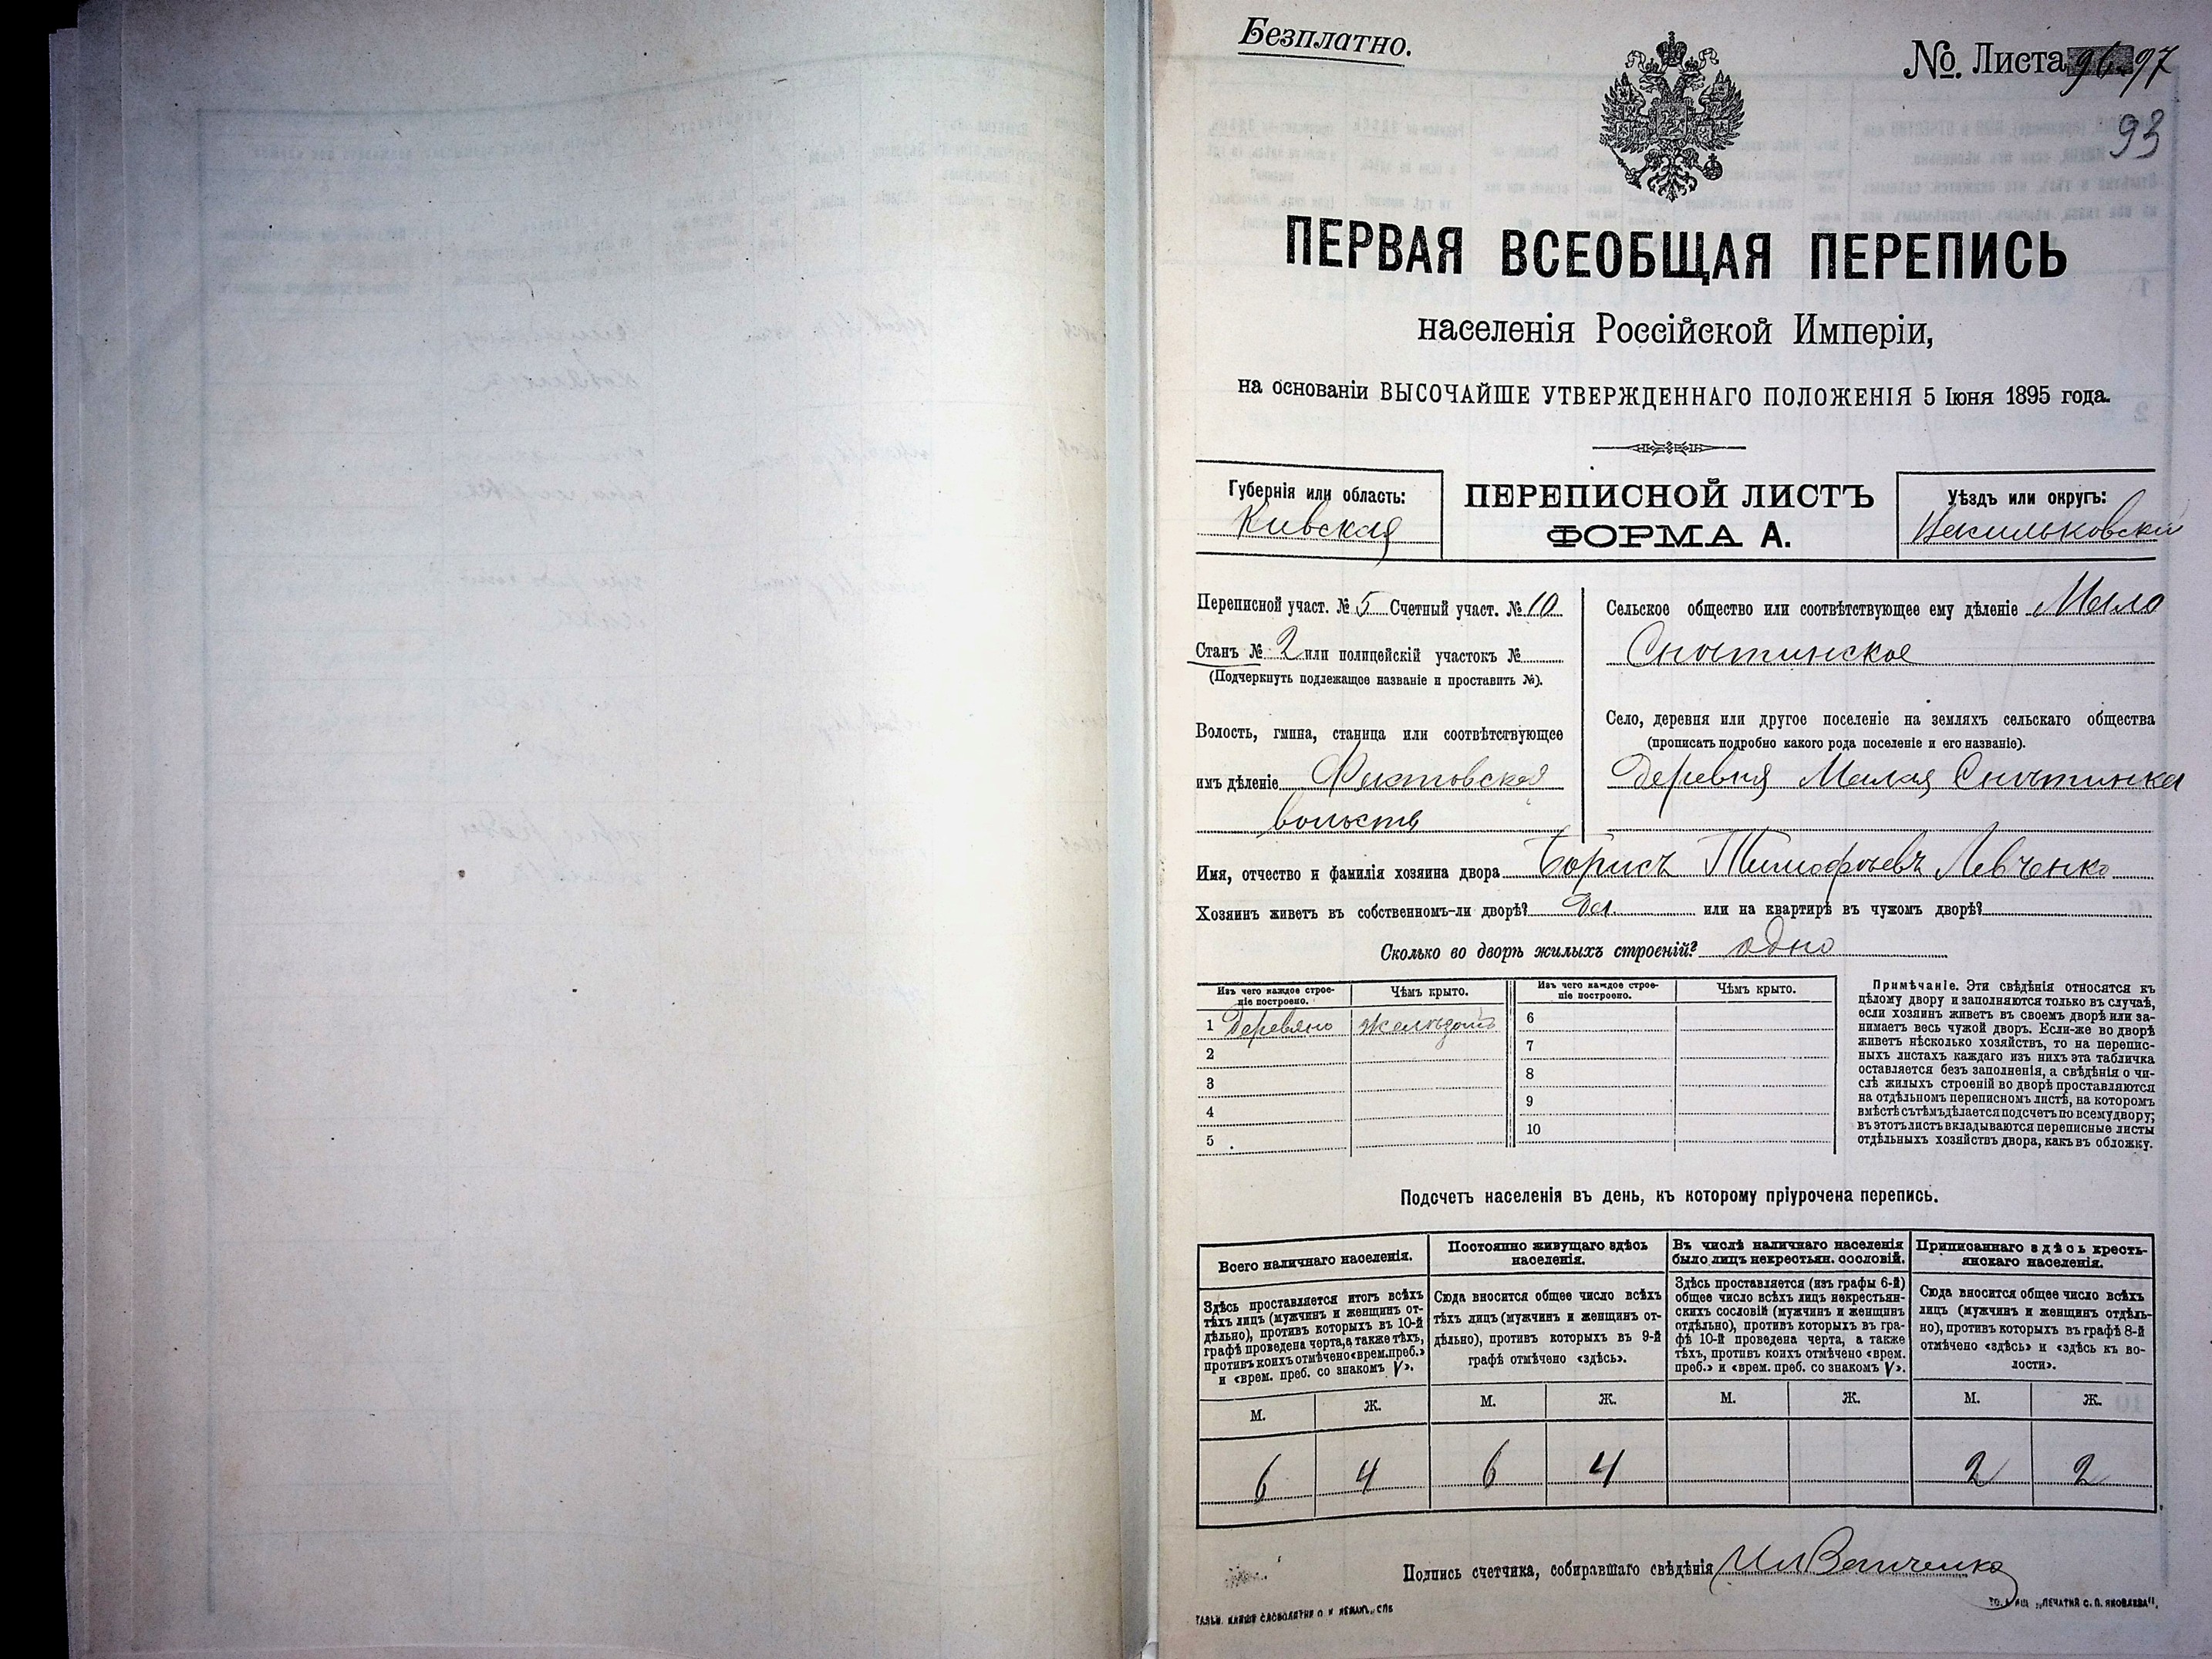 Безплатно.
№. Листа 97
93
ПЕРВАЯ ВСЕОБЩАЯ ПЕРЕПИСЬ
населенія Россійской Имперіи,
на основаніи ВЫСОЧАЙШЕ УТВЕРЖДЕННАГО ПОЛОЖЕНІЯ 5 Іюня 1895 года.
Губернія или область:
Кивская
ПЕРЕПИСНОЙ ЛИСТЪ
ФОРМА А.
Уѣздъ или округъ:
Васильковскій
Переписной участ. № 5 Счетный участ. № 10
Станъ № 2 или полицейскій участокъ №
(Подчеркнуть подлежащее названіе и проставить №).
Волость, гмина, станица или соотвѣтствующее
имъ дѣленіе Фастовская
волость
Сельское общество или соотвѣтствующее ему дѣленіе Мало
Снѣтинское
Село, деревня или другое поселеніе на земляхъ сельскаго общества
(прописать подробно какого рода поселеніе и его названіе).
Деревня Малая Снѣтинка
Имя, отчество и фамилія хозяина двора Борисъ Тимофѣевъ Левченко
Хозяинъ живетъ въ собственномъ-ли дворѣ? Да или на квартирѣ въ чужомъ дворѣ?
Сколько во дворѣ жилыхъ строеній? одно
Изъ чего каждое строе-
ніе построено.
Чѣмъ крыто.
Изъ чего каждое строе-
ніе построено.
Чѣмъ крыто.
1 Деревяно желѣзомъ 6
2 7
3 8
4 9
5 10
Примѣчаніе. Эти свѣдѣнія относятся къ
цѣлому двору и заполняются только въ случаѣ,
если хозяинъ живетъ въ своемъ дворѣ или за-
нимаетъ весь чужой дворъ. Если-же во дворѣ
живетъ нѣсколько хозяйствъ, то на перепис-
ныхъ листахъ каждаго изъ нихъ эта табличка
оставляется безъ заполненія, а свѣдѣнія о чи-
слѣ жилыхъ строеній во дворѣ проставляются
на отдѣльномъ переписномъ листѣ, на которомъ
вмѣстѣ съ тѣмъ дѣлается подсчетъ по всему двору;
въ этотъ листъ вкладываются переписные листы
отдѣльныхъ хозяйствъ двора, какъ въ обложку.
Подсчетъ населенія въ день, къ которому пріурочена перепись.
Всего наличнаго населенія.
Здѣсь проставляется итогъ всѣхъ
тѣхъ лицъ (мужчинъ и женщинъ от-
дѣльно), противъ которыхъ въ 10-й
графѣ проведена черта, а также тѣхъ,
противъ коихъ отмѣчено «врем. преб.»
и «врем. преб. со знакомъ V».
Постоянно живущаго здѣсь
населенія.
Сюда вносится общее число всѣхъ
тѣхъ лицъ (мужчинъ и женщинъ от-
дѣльно), противъ которыхъ въ 9-й
графѣ отмѣчено «здѣсь».
Въ числѣ наличнаго населенія
было лицъ некрестьян. сословій.
Здѣсь проставляется (изъ графы 6-й)
общее число всѣхъ лицъ некрестьян-
скихъ сословій (мужчинъ и женщинъ
отдѣльно), противъ которыхъ въ гра-
фѣ 10-й проведена черта, а также
тѣхъ, противъ коихъ отмѣчено «врем.
преб.» и «врем. преб. со знакомъ V».
Приписаннаго здѣсь кресть-
янскаго населенія.
Сюда вносится общее число всѣхъ
лицъ (мужчинъ и женщинъ отдѣль-
но), противъ которыхъ въ графѣ 8-й
отмѣчено «здѣсь» и «здѣсь къ во-
лости».
М. Ж. М. Ж. М. Ж. М. Ж.
6 4 6 4 2 2
Подпись счетчика, собиравшаго свѣдѣнія